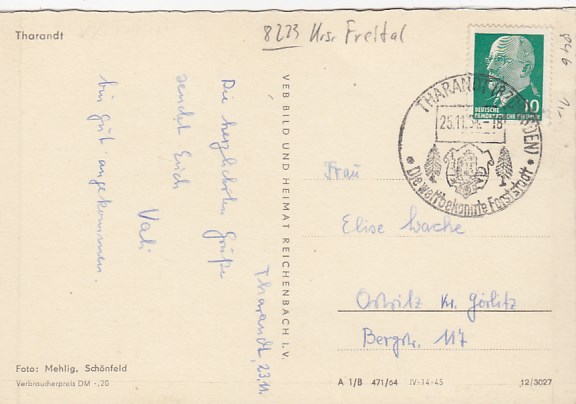 Tharandt
8223 Krsr Freital
846
1,-
Tharandt, 23.11.
Die herzlichsten Grüße
sendet Euch
Vati
bin gut angekommen.
VEB BILD UND HEIMAT REICHENBACH I. V.
10
DEUTSCHE
DEMOKRATISCHE REPUBLIK
THARANDT (BZ. DRESDEN)
25.11.64.-18
• Die weltbekannte Forststadt •
Frau
Elise
Ostritz Kr. Görlitz
Bergstr. 117
Foto: Mehlig, Schönfeld
Verbraucherpreis DM -,20
A 1/B 471/64 IV-14-45 12/3027